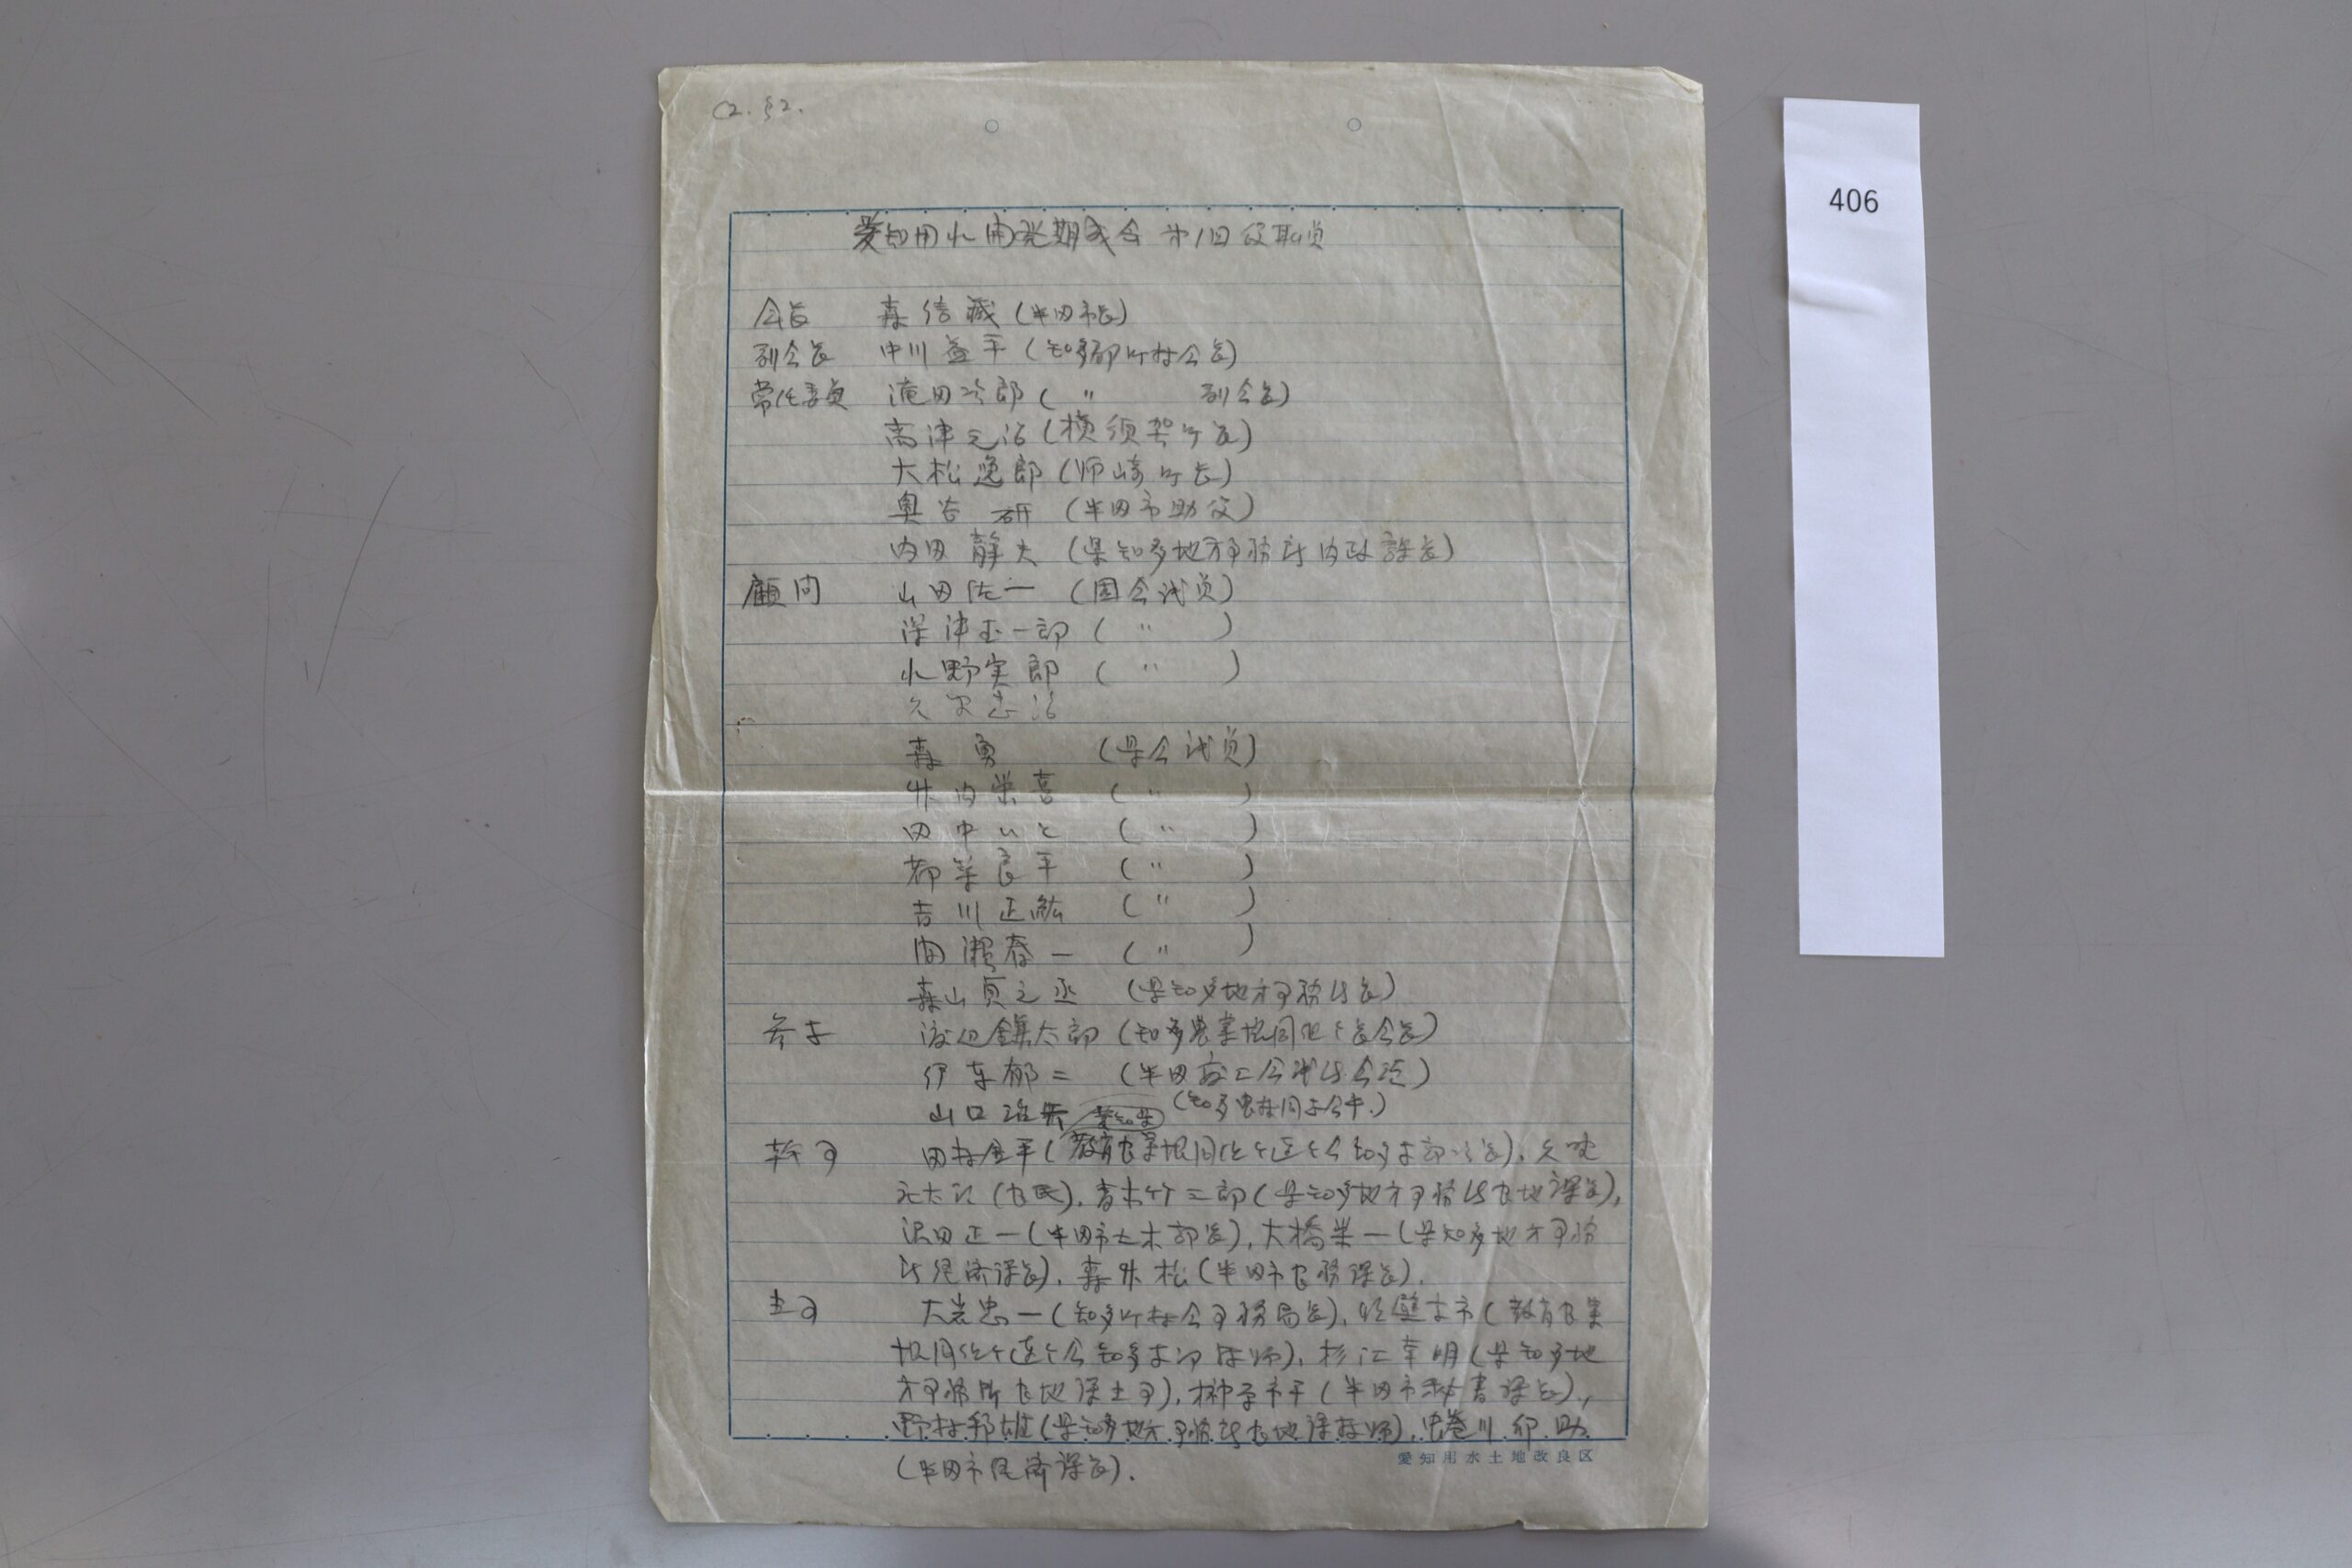 C2. §2.
406
愛知用水開発期成会 第1回役職員
会長 森信蔵(半田市長)
副会長 中川益平(知多郡町村会長)
常任委員 滝田次郎( 〃 副会長)
高津元治(横須賀町長)
大松逸郎(師崎町長)
奥谷 研 (半田市助役)
内田静夫 (県知多地方事務所内政課長)
顧問 山田佐一 (国会議員)
深津玉一郎 ( 〃 )
水野実郎 ( 〃 )
久野忠治
森 勇 (県会議員)
竹内栄喜 ( 〃 )
田中いと ( 〃 )
都築良平 ( 〃 )
吉川正紘 ( 〃 )
間瀬春一 ( 〃 )
森山貞之丞 (県知多地方事務所長)
参与 渡辺金美太郎 (知多農業協同組合長会長)
伊東郁二 (半田商工会議所会頭)
山口 (知多農村同志会)
幹事 田村金平(教育農業協同組合連合会知多支部次長)、久野
(農民)、青木竹三郎(県知多地方事務所農地課長)、
沢田正一(半田市土木部長)、大橋栄一(県知多地方事務
所経済課長)、森外松(半田市農務課長)、
主事 大岩忠一(知多町村会事務局長)、(教育農業
協同組合連合会知多支部技師)、杉江幸明(県知多地
方事務所農地課主事)、榊原市平(半田市秘書課長)、
野村邦雄(県知多地方事務所農地課技師)、中巻川印助
(半田市経済課長)、
愛知用水土地改良区